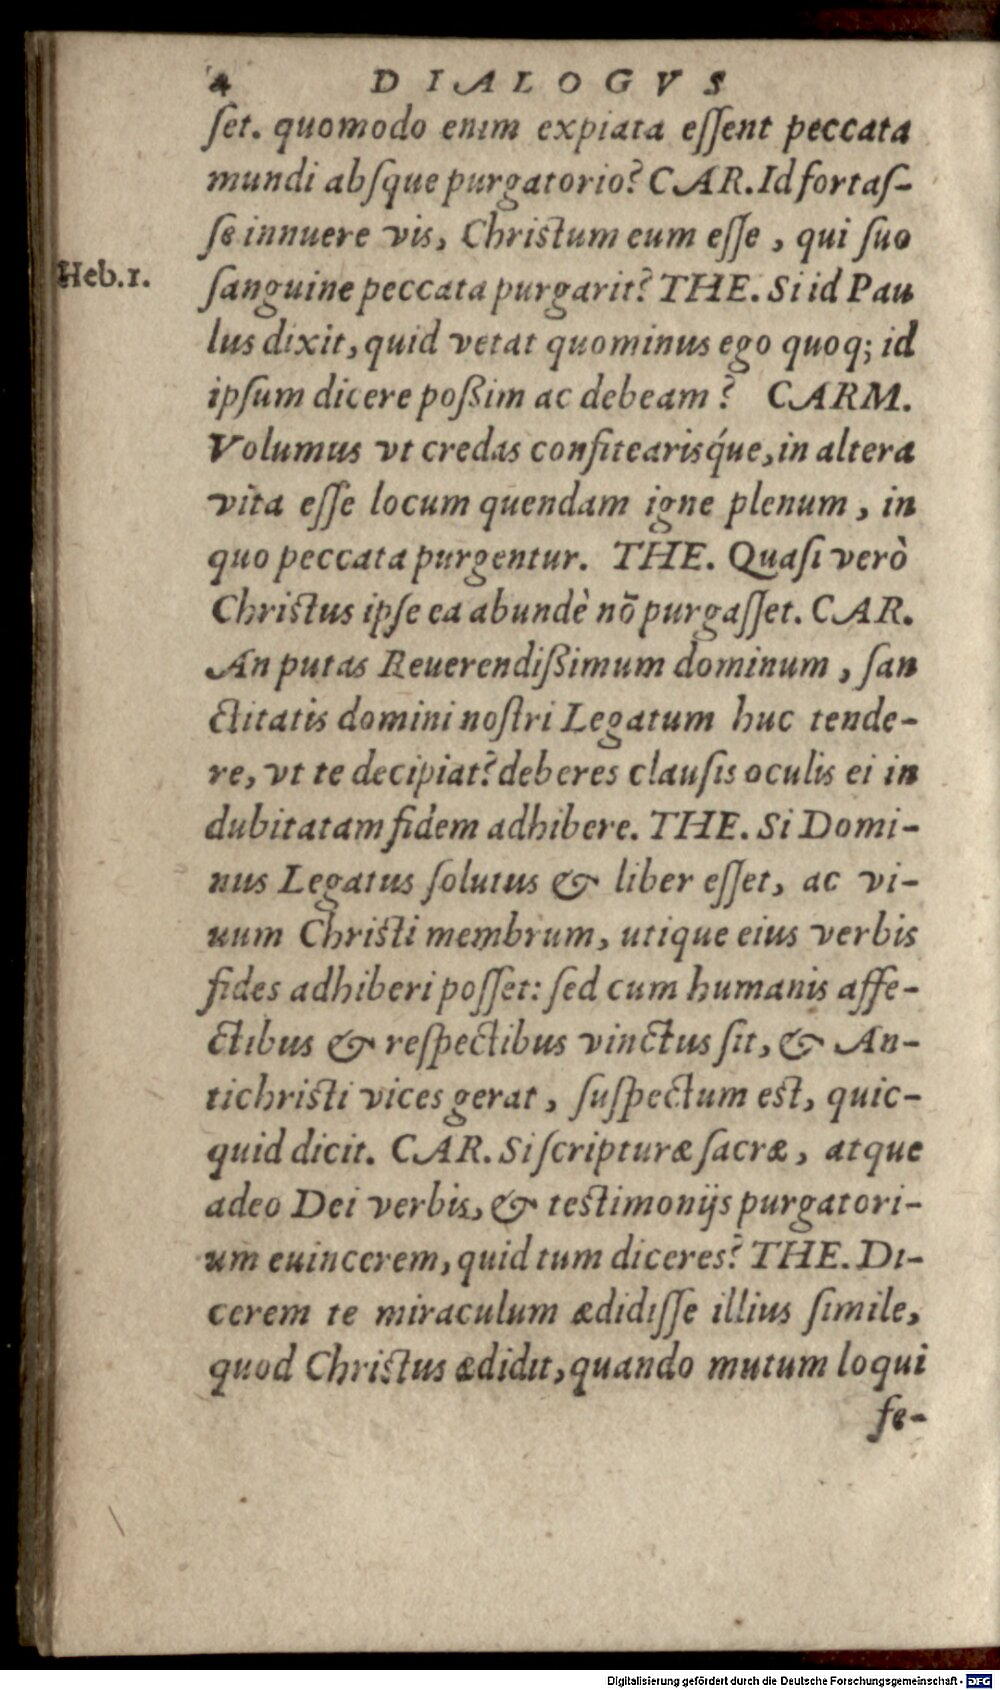 4 DIALOGVS
ſet. quomodo enim expiata eſſent peccata
mundi abſque purgatorio? CAR. Id fortaſ-
ſe innuere vis, Chriſtum eum eſſe, qui ſuo
Heb.1.
ſanguine peccata purgarit? THE. Si id Pau
lus dixit, quid vetat quominus ego quoq; id
ipſum dicere poßim ac debeam? CARM.
Volumus vt credas confitearisq́ue, in altera
vita eſſe locum quendam igne plenum, in
quo peccata purgentur. THE. Quaſi verò
Chriſtus ipſe ea abundè nō purgaſſet. CAR.
An putas Reuerendißimum dominum, ſan
ctitatis domini noſtri Legatum huc tende-
re, vt te decipiat? deberes clauſis oculis ei in
dubitatam fidem adhibere. THE. Si Domi-
nus Legatus ſolutus & liber eſſet, ac vi-
uum Chriſti membrum, utique eius verbis
fides adhiberi poſſet: ſed cum humanis affe-
ctibus & reſpectibus vinctus ſit, & An-
tichriſti vices gerat, ſuſpectum eſt, quic-
quid dicit. CAR. Si ſcripturæ ſacræ, atque
adeo Dei verbis, & teſtimonijs purgatori-
um euincerem, quid tum diceres? THE. Di-
cerem te miraculum ædidiſſe illius ſimile,
quod Chriſtus ædidit, quando mutum loqui
fe-
Digitalisierung gefördert durch die Deutsche Forschungsgemeinschaft - DFG